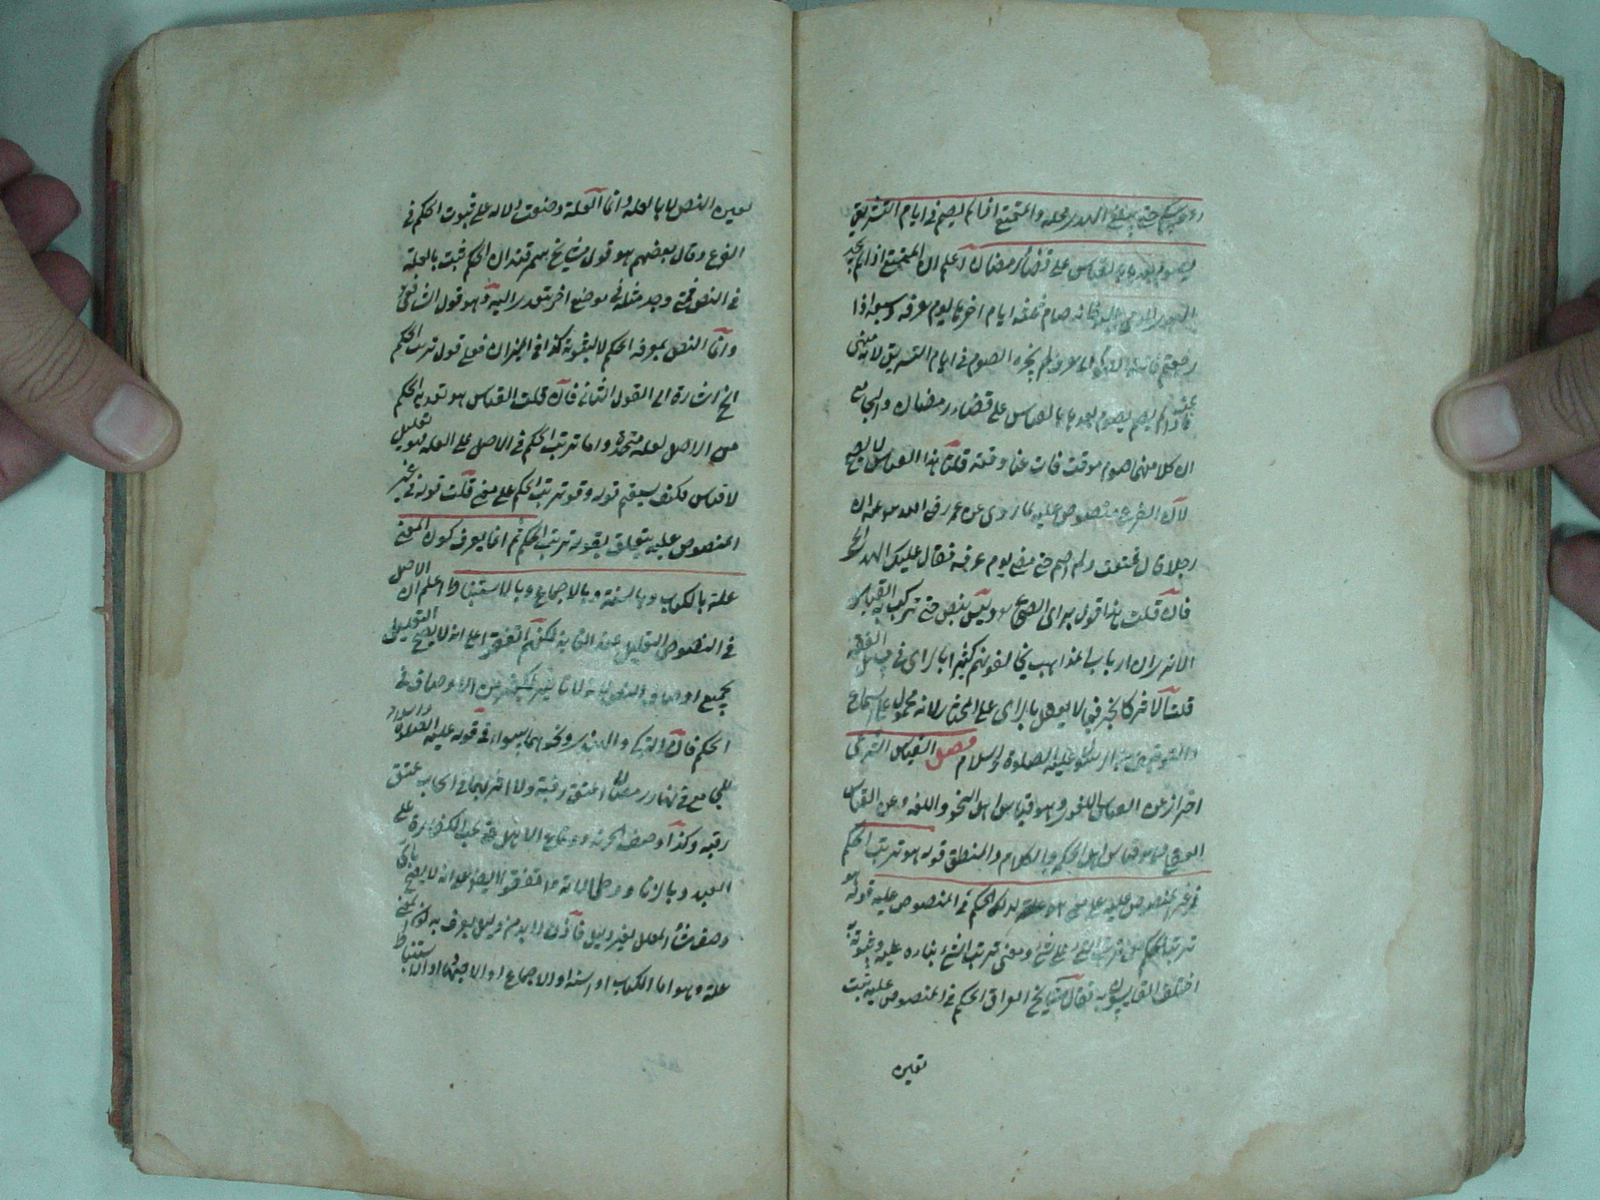 رءوسكم حتى يبلغ الهدي محله والمتمتع اذا لم يصم في ايام التشريق
يصوم بعدها بالقياس على قضاء رمضان اعلم ان المتمتع اذا لم يجد
الهدي صام ثلثة ايام اخرها يوم عرفة وسبعة اذا
رجعتم لم يجزه الصوم في ايام التشريق لانه منهى
عنه فاذا لم يصم يصوم بعدها بالقياس على قضاء رمضان والجامع
ان كلا منهما صوم موقت فات عن وقته قلنا هذا القياس لا يصح
لان الفرع منصوص عليه لما روى عن عمر رضي الله عنه ان
رجلا قال تمتعت ولم اصم حتى مضى يوم عرفة فقال عليك الهدي
فان قلت هذا قول الصحابي وليس بنص حتى ترك به القياس
الا ترى ان ارباب المذاهب يخالفونهم كثيرا بالراى في الفقه
قلت الاثر كالخبر فيما لا يعقل بالراى على المختار لانه محمول على سماع
من الرسول عليه الصلوة والسلام فصل القياس الشرعي
احتراز عن القياس اللغوي وهو قياس اهل النحو واللغة وعن القياس
العقلي وهو قياس اهل الحكمة والكلام والمنطق قوله هو ترتب الحكم
في غير المنصوص عليه على معنى هو علة لذلك الحكم في المنصوص عليه قوله
ترتب الحكم من ترتب الشئ على شئ ومعنى ترتب الشئ بناره عليه وثبوته به
اختلف القايسون فقال مشايخ العراق الحكم في المنصوص عليه ثبت
بعين
بعين النص لا بالعلة وانما العلة وضعت دلالة على ثبوت الحكم في
الفرع وقال بعضهم هو قول مشايخ سمرقند ان الحكم ثبت بالعلة
في النص فمتى وجد مثله في موضع اخر يتعدى اليه وهو قول الشافعي
وانما النص لمعرفة الحكم لا لثبوته كذا في الميزان فعلى قول ترتب الحكم
الخ اشارة الى القول الثاني فان قلت القياس هو تعدية الحكم
من الاصل لعلة متحدة واما ترتب الحكم في الاصل على العلة فهو تعليل
لا قياس فكيف يستقيم قوله وهو ترتب الحكم على معنى قلت قوله في غير
المنصوص عليه يتعلق بقوله ترتب الحكم ثم انما يعرف كون المعنى
علة بالكتاب وبالسنة وبالاجماع وبالاستنباط اعلم ان الاصل
في النصوص التعليل عند القايسين لكنهم اتفقوا على انه لا يصح التعليل
بجميع اوصاف النص لانه لا تاثير لكثير من الاوصاف في
الحكم فان التركي والهندي ونحوهما سواء في قوله عليه الصلوة والسلام
للجامع في نهار رمضان اعتق رقبة ولا اثر لهما في ايجاب عتق
رقبة وكذا وصف الحرية ووقاع الاهل حتى يجب الكفارة على
العبد وبالزنا ووطى الامة واتفقوا ايضا على انه لا يصح باى
وصف شاء المعلل بغير دليل فاذن لا بد من دليل يعرف به كون المعنى
علة وهو اما الكتاب او السنة او الاجماع او الاجتهاد والاستنباط